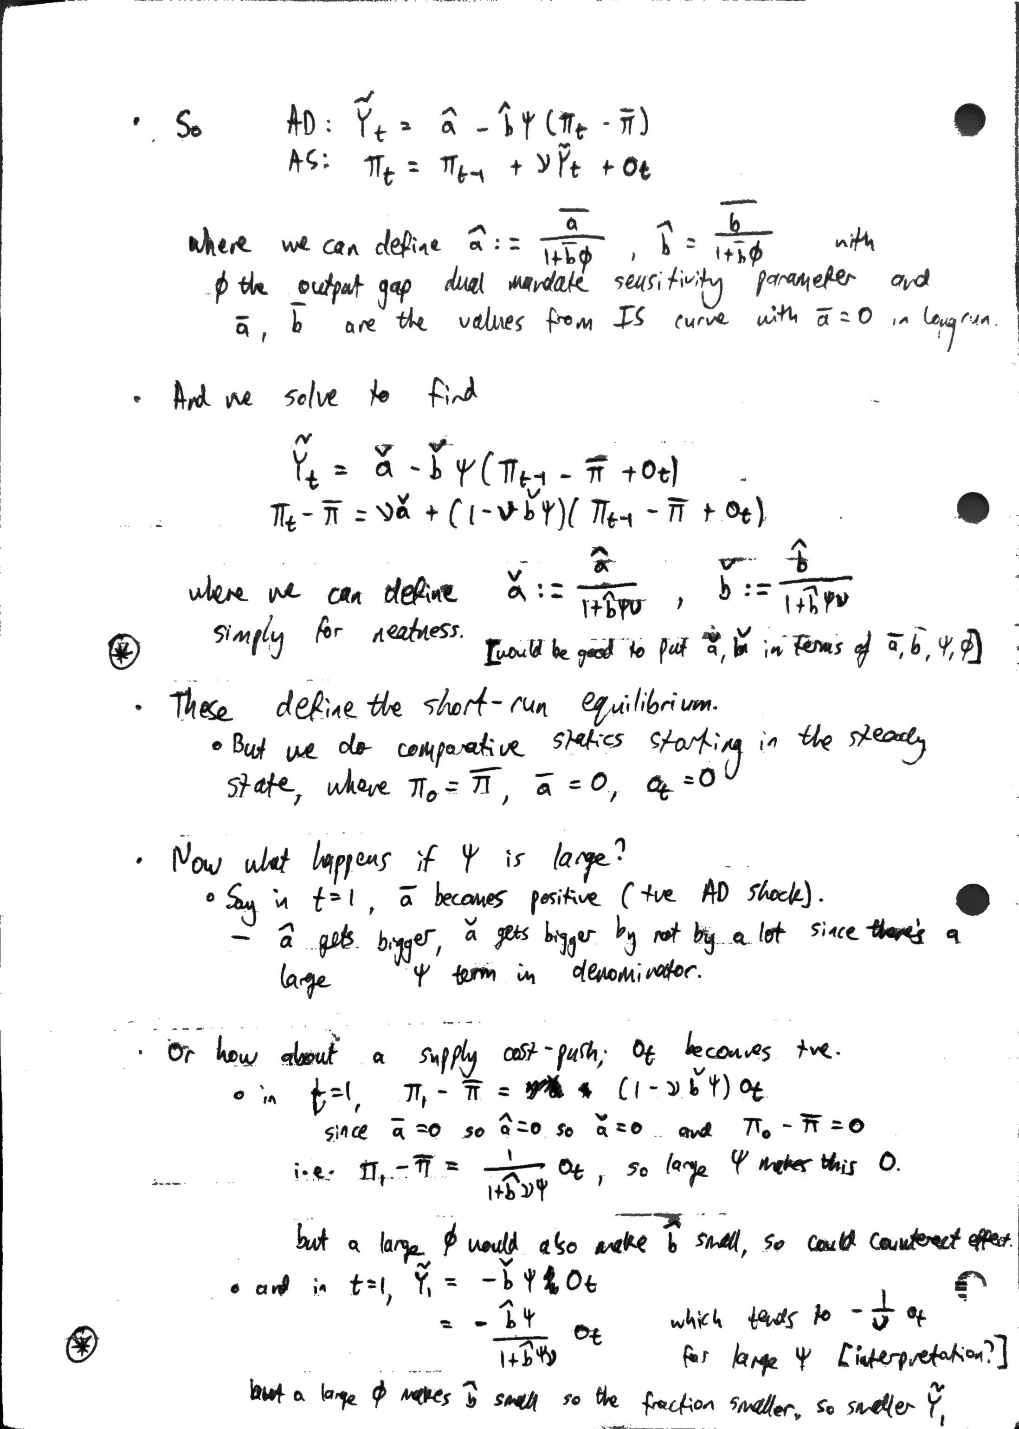 · So AD: Ỹₜ = â - b̂ψ(πₜ - π̄)
AS: πₜ = πₜ₋₁ + νỸₜ + oₜ
where we can define â := ā/(1+b̄φ) , b̂ = b̄/(1+b̄φ) with
φ the output gap dual mandate sensitivity parameter and
ā, b̄ are the values from IS curve with ā = 0 in long run.
· And we solve to find
Ỹₜ = ǎ - b̌ψ(πₜ₋₁ - π̄ + oₜ)
πₜ - π̄ = νǎ + (1-νb̌ψ)(πₜ₋₁ - π̄ + oₜ)
where we can define ǎ := â/(1+b̂ψν) , b̌ := b̂/(1+b̂ψν)
simply for neatness.
⊛ [would be good to put ǎ, b̌ in terms of ā, b̄, ψ, φ]
· These define the short-run equilibrium.
• But we do comparative statics starting in the steady
state, where π₀ = π̄, ā = 0, oₜ = 0
· Now what happens if ψ is large?
• Say in t=1, ā becomes positive (+ve AD shock).
- â gets bigger, ǎ gets bigger by not by a lot since there's a
large ψ term in denominator.
· Or how about a supply cost-push; oₜ becomes +ve.
• in t=1, π₁ - π̄ = (1-νb̌ψ)oₜ
since ā=0 so â=0 so ǎ=0 and π₀ - π̄ = 0
i.e. π₁ - π̄ = 1/(1+b̂νψ) oₜ, so large ψ makes this 0.
but a large φ would also make b̂ small, so could counteract effect.
• and in t=1, Ỹ₁ = -b̌ψ oₜ
= - b̂ψ/(1+b̂ψν) oₜ which tends to -1/ν oₜ
⊛ for large ψ [interpretation?]
but a large φ makes b̂ small so the fraction smaller, so smaller Ỹ₁